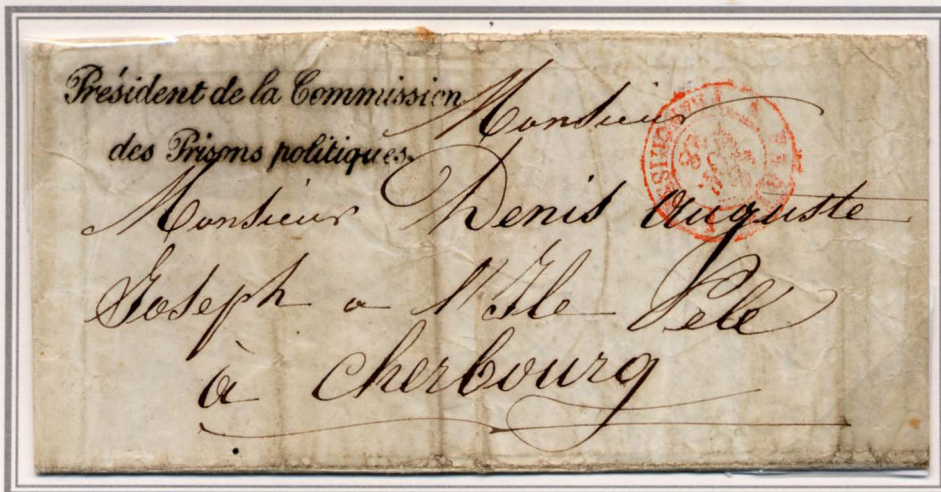 Président de la Commission
des Prisons politiques.
Monsieur
Monsieur Denis Auguste
Joseph a l'Ile Pelé
à Cherbourg